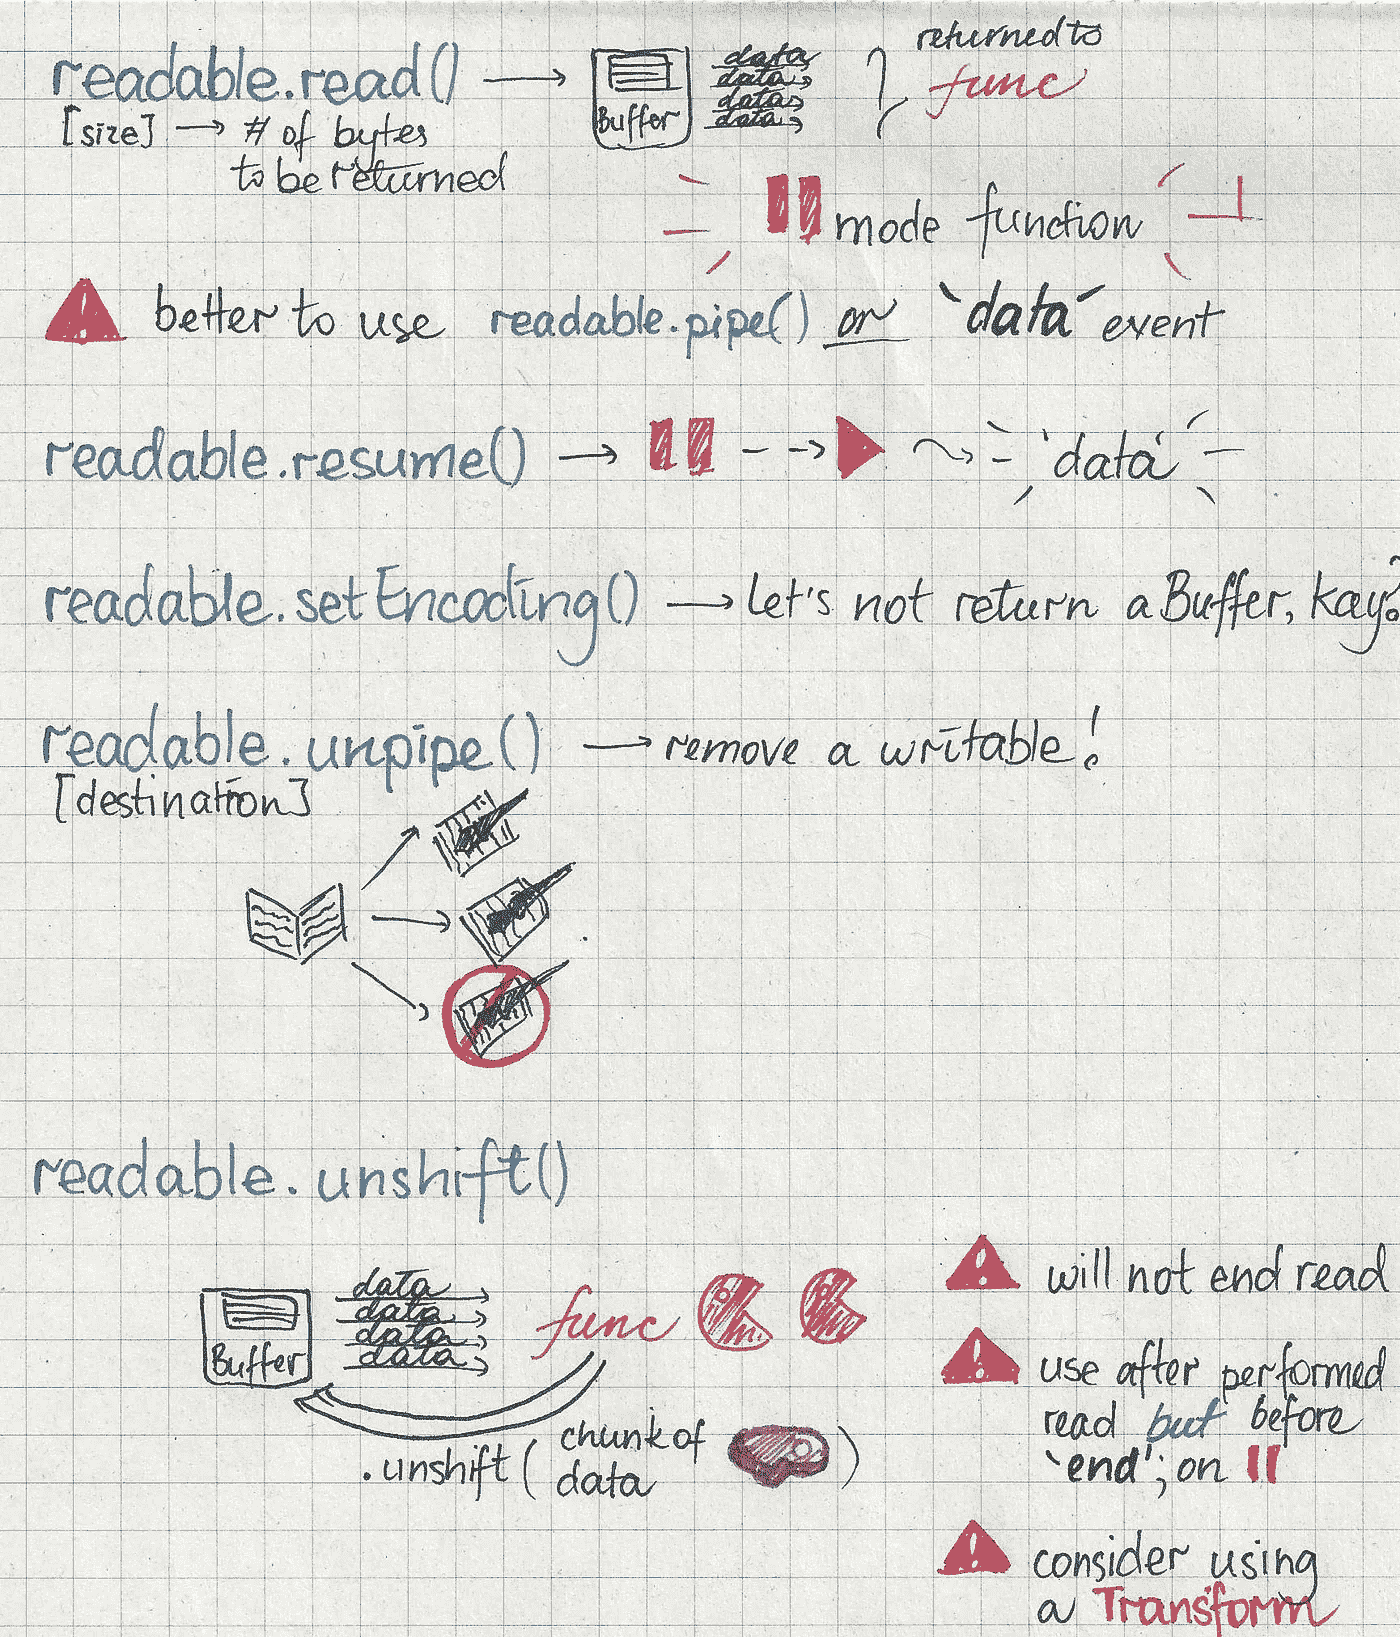 readable.read() → Buffer data data data data } returned to func
[size] → # of bytes
to be returned
mode function
better to use readable.pipe() or `data´ event
readable.resume() → 'data'
readable.setEncoding() → Let's not return a Buffer, kay?
readable.unpipe() → remove a writable!
[destination]
readable.unshift()
Buffer data data data data func
.unshift( chunk of data )
will not end read
use after performed
read but before
'end'; on
consider using
a Transform